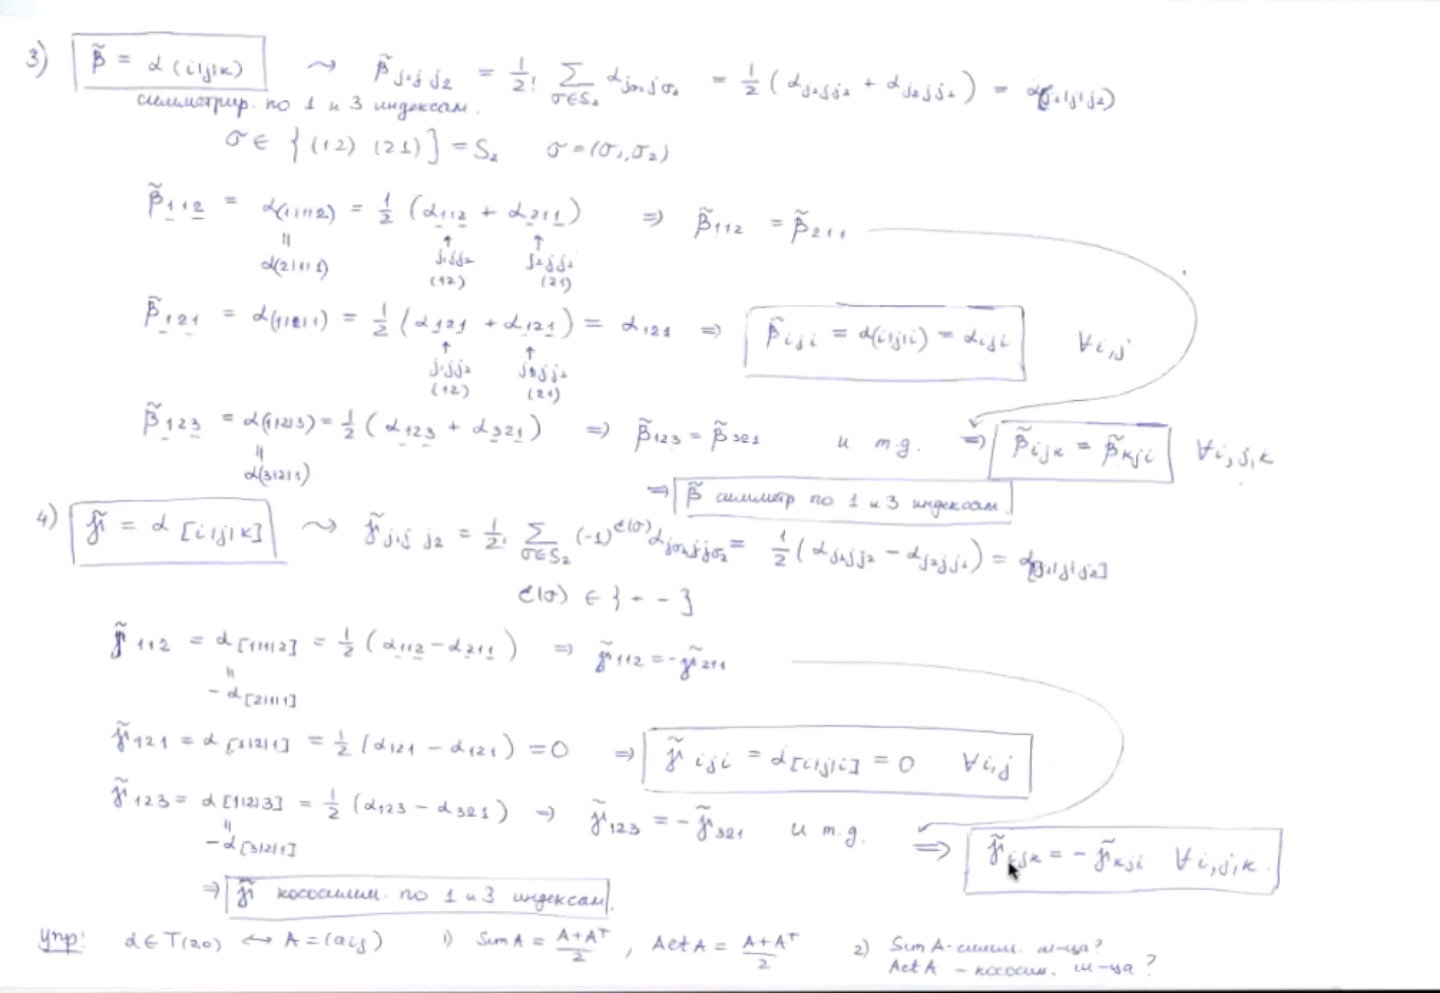 3) β̃ = α(i|j|k) ⤳ β̃ j₁ j j₂ = 1/2! Σ σ∈S₂ α jσ₁ j jσ₂ = 1/2 (α j₁jj₂ + α j₂jj₁) = α(j₁|j|j₂)
симметрир. по 1 и 3 индексам.
σ ∈ {(12) (21)} = S₂ σ = (σ₁, σ₂)
β̃ 112 = α(1|1|2) = 1/2 (α112 + α211) ⇒ β̃112 = β̃211
|| ↑ ↑
α(2|1|1) j₁jj₂ j₂jj₁
(12) (21)
β̃ 121 = α(1|2|1) = 1/2 (α121 + α121) = α121 ⇒ β̃ iji = α(i|j|i) = α iji ∀i,j
↑ ↑
j₁jj₂ j₂jj₁
(12) (21)
β̃ 123 = α(1|2|3) = 1/2 (α123 + α321) ⇒ β̃123 = β̃321 и т.д. ⇒ β̃ijk = β̃kji ∀i,j,k
||
α(3|2|1)
⇒ β̃ симметр по 1 и 3 индексам
4) γ̃ = α[i|j|k] ⤳ γ̃ j₁ j j₂ = 1/2! Σ σ∈S₂ (-1)^ε(σ) α jσ₁ j jσ₂ = 1/2 (α j₁jj₂ − α j₂jj₁) = α[j₁|j|j₂]
ε(σ) ∈ {+ -}
γ̃ 112 = α[1|1|2] = 1/2 (α112 − α211) ⇒ γ̃112 = −γ̃211
||
− α[2|1|1]
γ̃121 = α[1|2|1] = 1/2 (α121 − α121) = 0 ⇒ γ̃ iji = α[i|j|i] = 0 ∀i,j
γ̃123 = α[1|2|3] = 1/2 (α123 − α321) ⇒ γ̃123 = −γ̃321 и т.д. ⇒ γ̃ijk = −γ̃kji ∀i,j,k.
||
−α[3|2|1]
⇒ γ̃ кососимм. по 1 и 3 индексам.
Упр: α ∈ T(2,0) ↔ A = (aij) 1) Sim A = (A+Aᵀ)/2 , Act A = (A+Aᵀ)/2 2) Sim A - симм. м-ца?
Act A - кососим. м-ца?